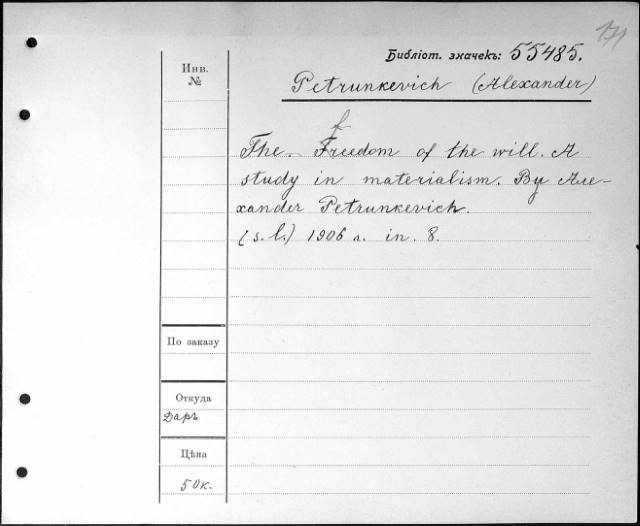 171
Библіот. значекъ: 55485.
Инв.
№
Petrunkevich (Alexander)
f
The. Freedom of the will. A
study in materialism. By Ale-
xander Petrunkevich.
(s. l.) 1906 л. in. 8.
По заказу
Откуда
Даръ
Цѣна
50к.